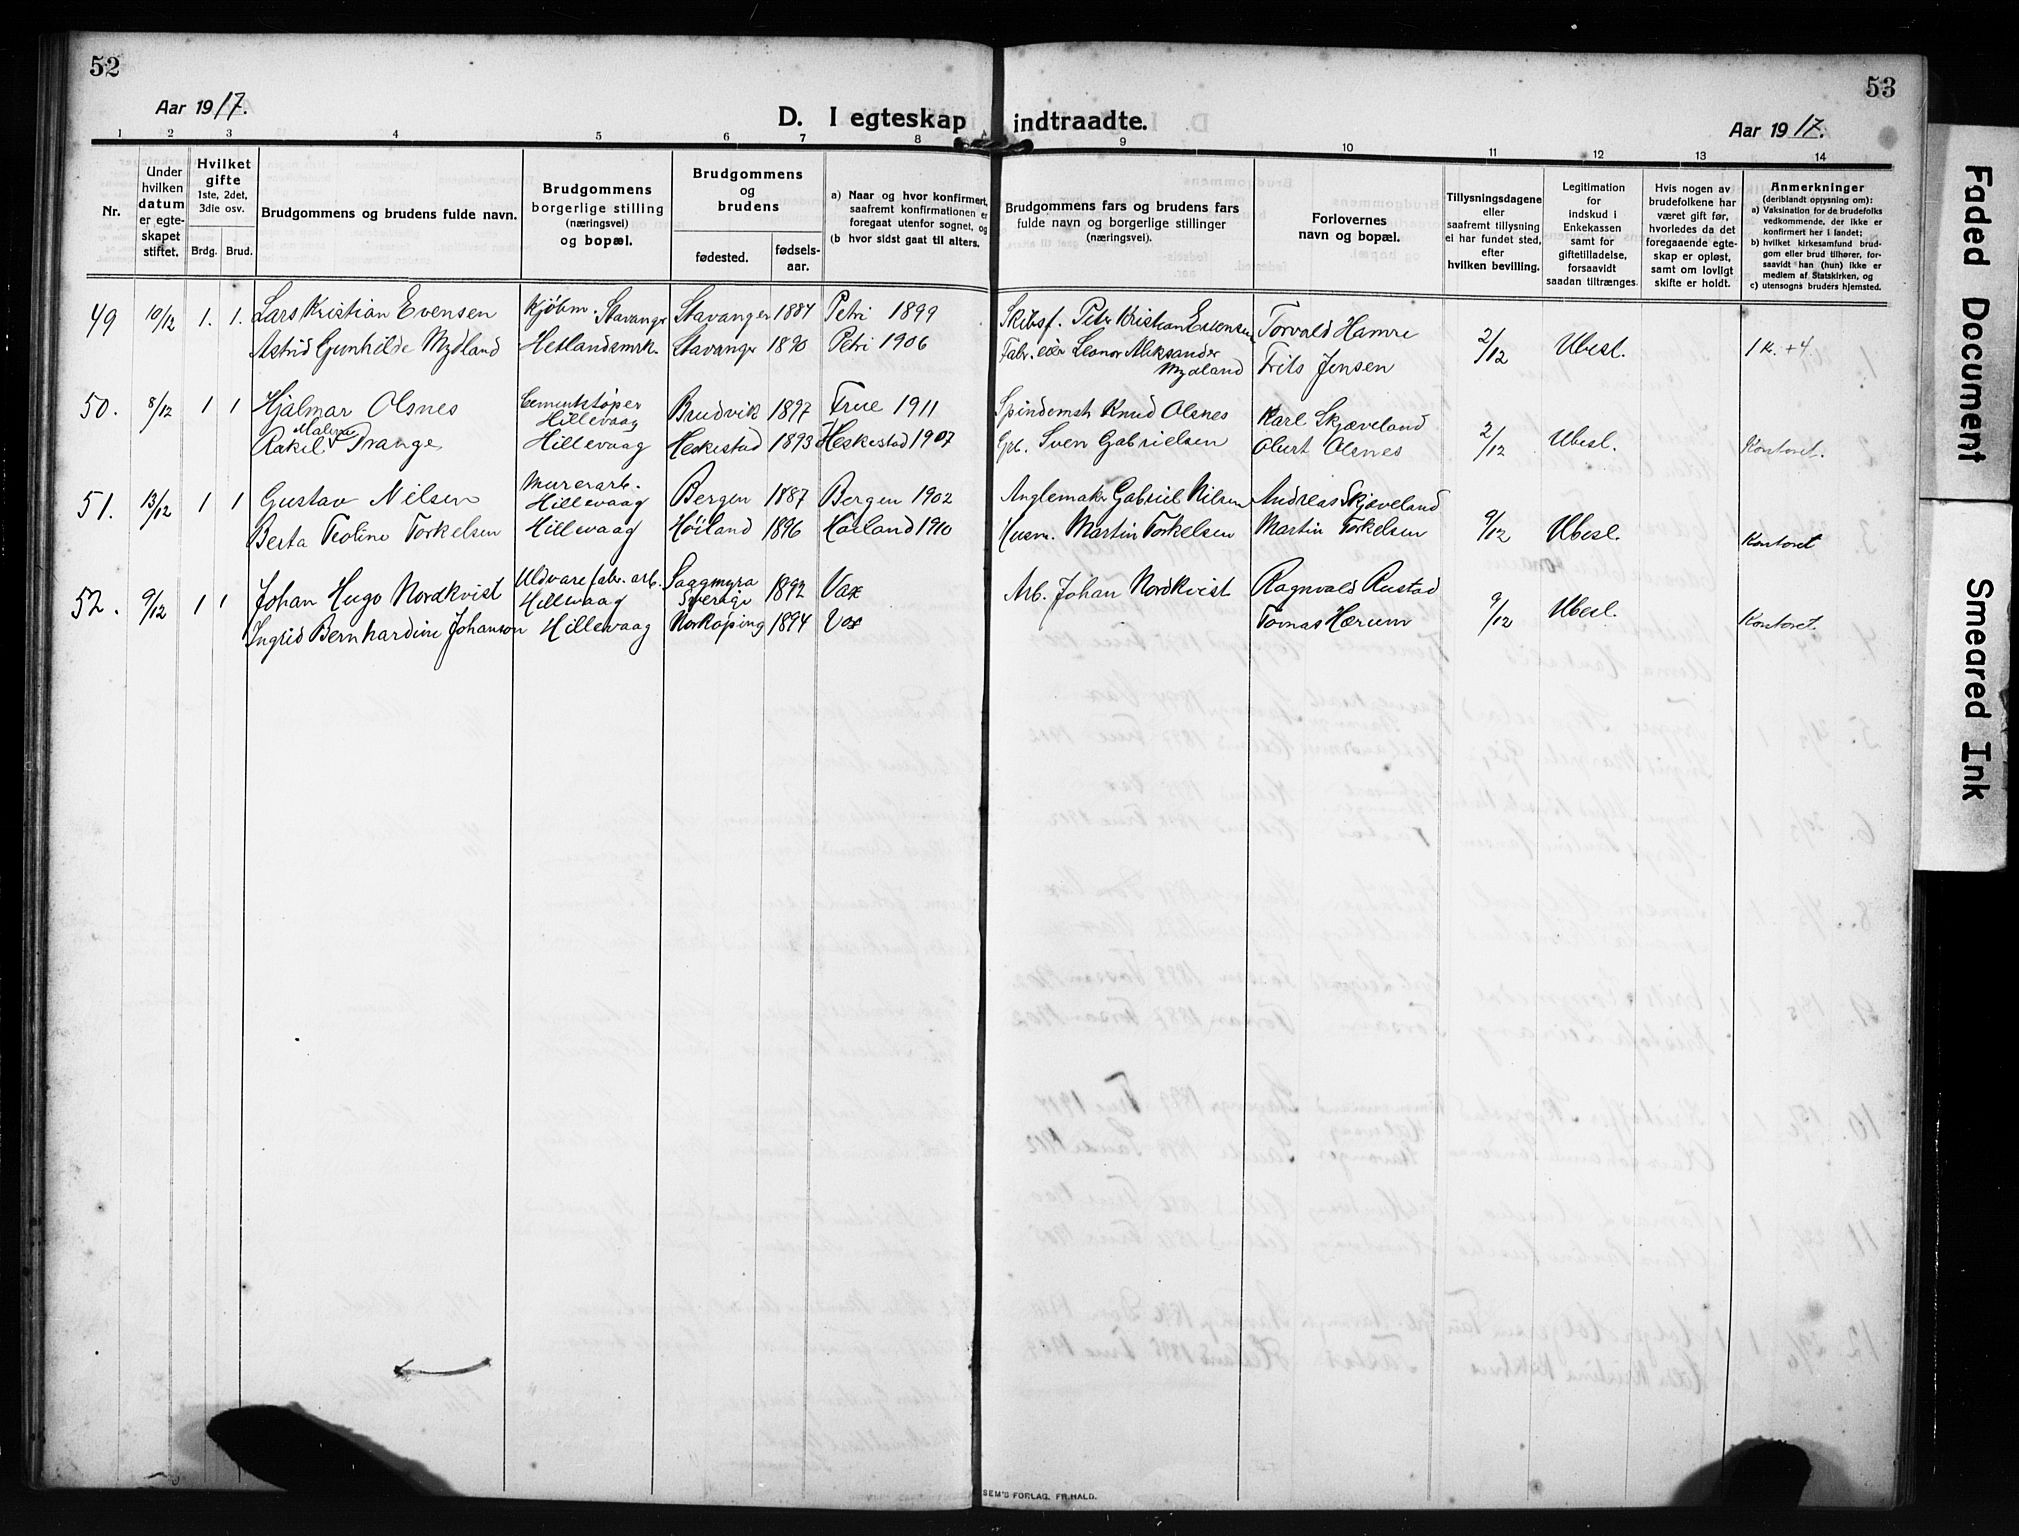 52
53
Aar 1917.
D. I egteskap indtraadte.
Aar 1917.
1 2 3 4 5 6 7 8 9 10 11 12 13 14
Nr.
Under hvilken datum er egteskapet stiftet.
Hvilket gifte
1ste, 2det, 3die osv.
Brdg. Brud.
Brudgommens og brudens fulde navn.
Brudgommens borgerlige stilling (næringsvei) og bopæl.
Brudgommens og brudens
fødested. fødselsaar.
a) Naar og hvor konfirmert, saafremt konfirmationen er foregaat utenfor sognet, og
(b hvor sidst gaat til alters.
Brudgommens fars og brudens fars fulde navn og borgerlige stillinger (næringsvei).
Forlovernes navn og bopæl.
Tillysningsdagene eller saafremt tillysning ei har fundet sted, efter hvilken bevilling.
Legitimation for indskud i Enkekassen samt for giftetilladelse, forsaavidt saadan tiltrænges.
Hvis nogen av brudefolkene har været gift før, hvorledes da det foregaaende egteskap er opløst, samt om lovligt skifte er holdt.
Anmerkninger (deriblandt opjysning om):
a) Vaksination for de brudefolks vedkommende, der ikke er konfirmert her i landet;
b) hvilket kirkesamfund brudgom eller brud tilhører, forsaavidt han (hun) ikke er medlem af Statskirken, og
c) utensogns bruders hjemsted.
49 10/12 1. 1. Lars Kristian Evensen Kjøbm. Stavanger Stavanger 1884 Petri 1899 Skibsf. Peter Kristian Evensen Torvald Hamre 2/12 Ubesl. 1 K. + 4.
Astrid Gunhilde Mydland Hetlandsmrk. Stavanger 1890 Petri 1906 Fabr.eier Leonor Aleksander Mydland Frits Jensen
50. 8/12 1 1 Hjalmar Olsnes Cementstøper Hillevaag Bruvik 1897 Frue 1911 Spindemstr Knud Olsnes Karl Skjæveland 2/12 Ubesl. Kontoret.
Rakel Malene Trange Hillevaag Heskestad 1893 Heskestad 1907 Gbr. Sven Gabrielsen Obert Olsnes
51. 13/12 1 1 Gustav Nilsen Murerarb. Hillevaag Bergen 1887 Bergen 1902 Anglemakr Gabriel Nilsen Andreas Skjæveland 9/12 Ubesl. Kontoret
Berta Teoline Torkelsen Hillevaag Høiland 1896 Høiland 1910 Husm. Martin Torkelsen Martin Torkelsen
52. 9/12 1 1 Johan Hugo Nordkvist Uldvarefabr. arb. Hillevaag Saagmyra Sverige 1892 Vax Arb. Johan Nordkvist Ragnvald Rustad 9/12 Ubesl. Kontoret.
Ingrid Bernhardine Johanson Hillevaag Norkøping 1894 Vax Tomas Hærum
SEM'S FORLAG, FR.HALD.
Faded Document
Smeared Ink